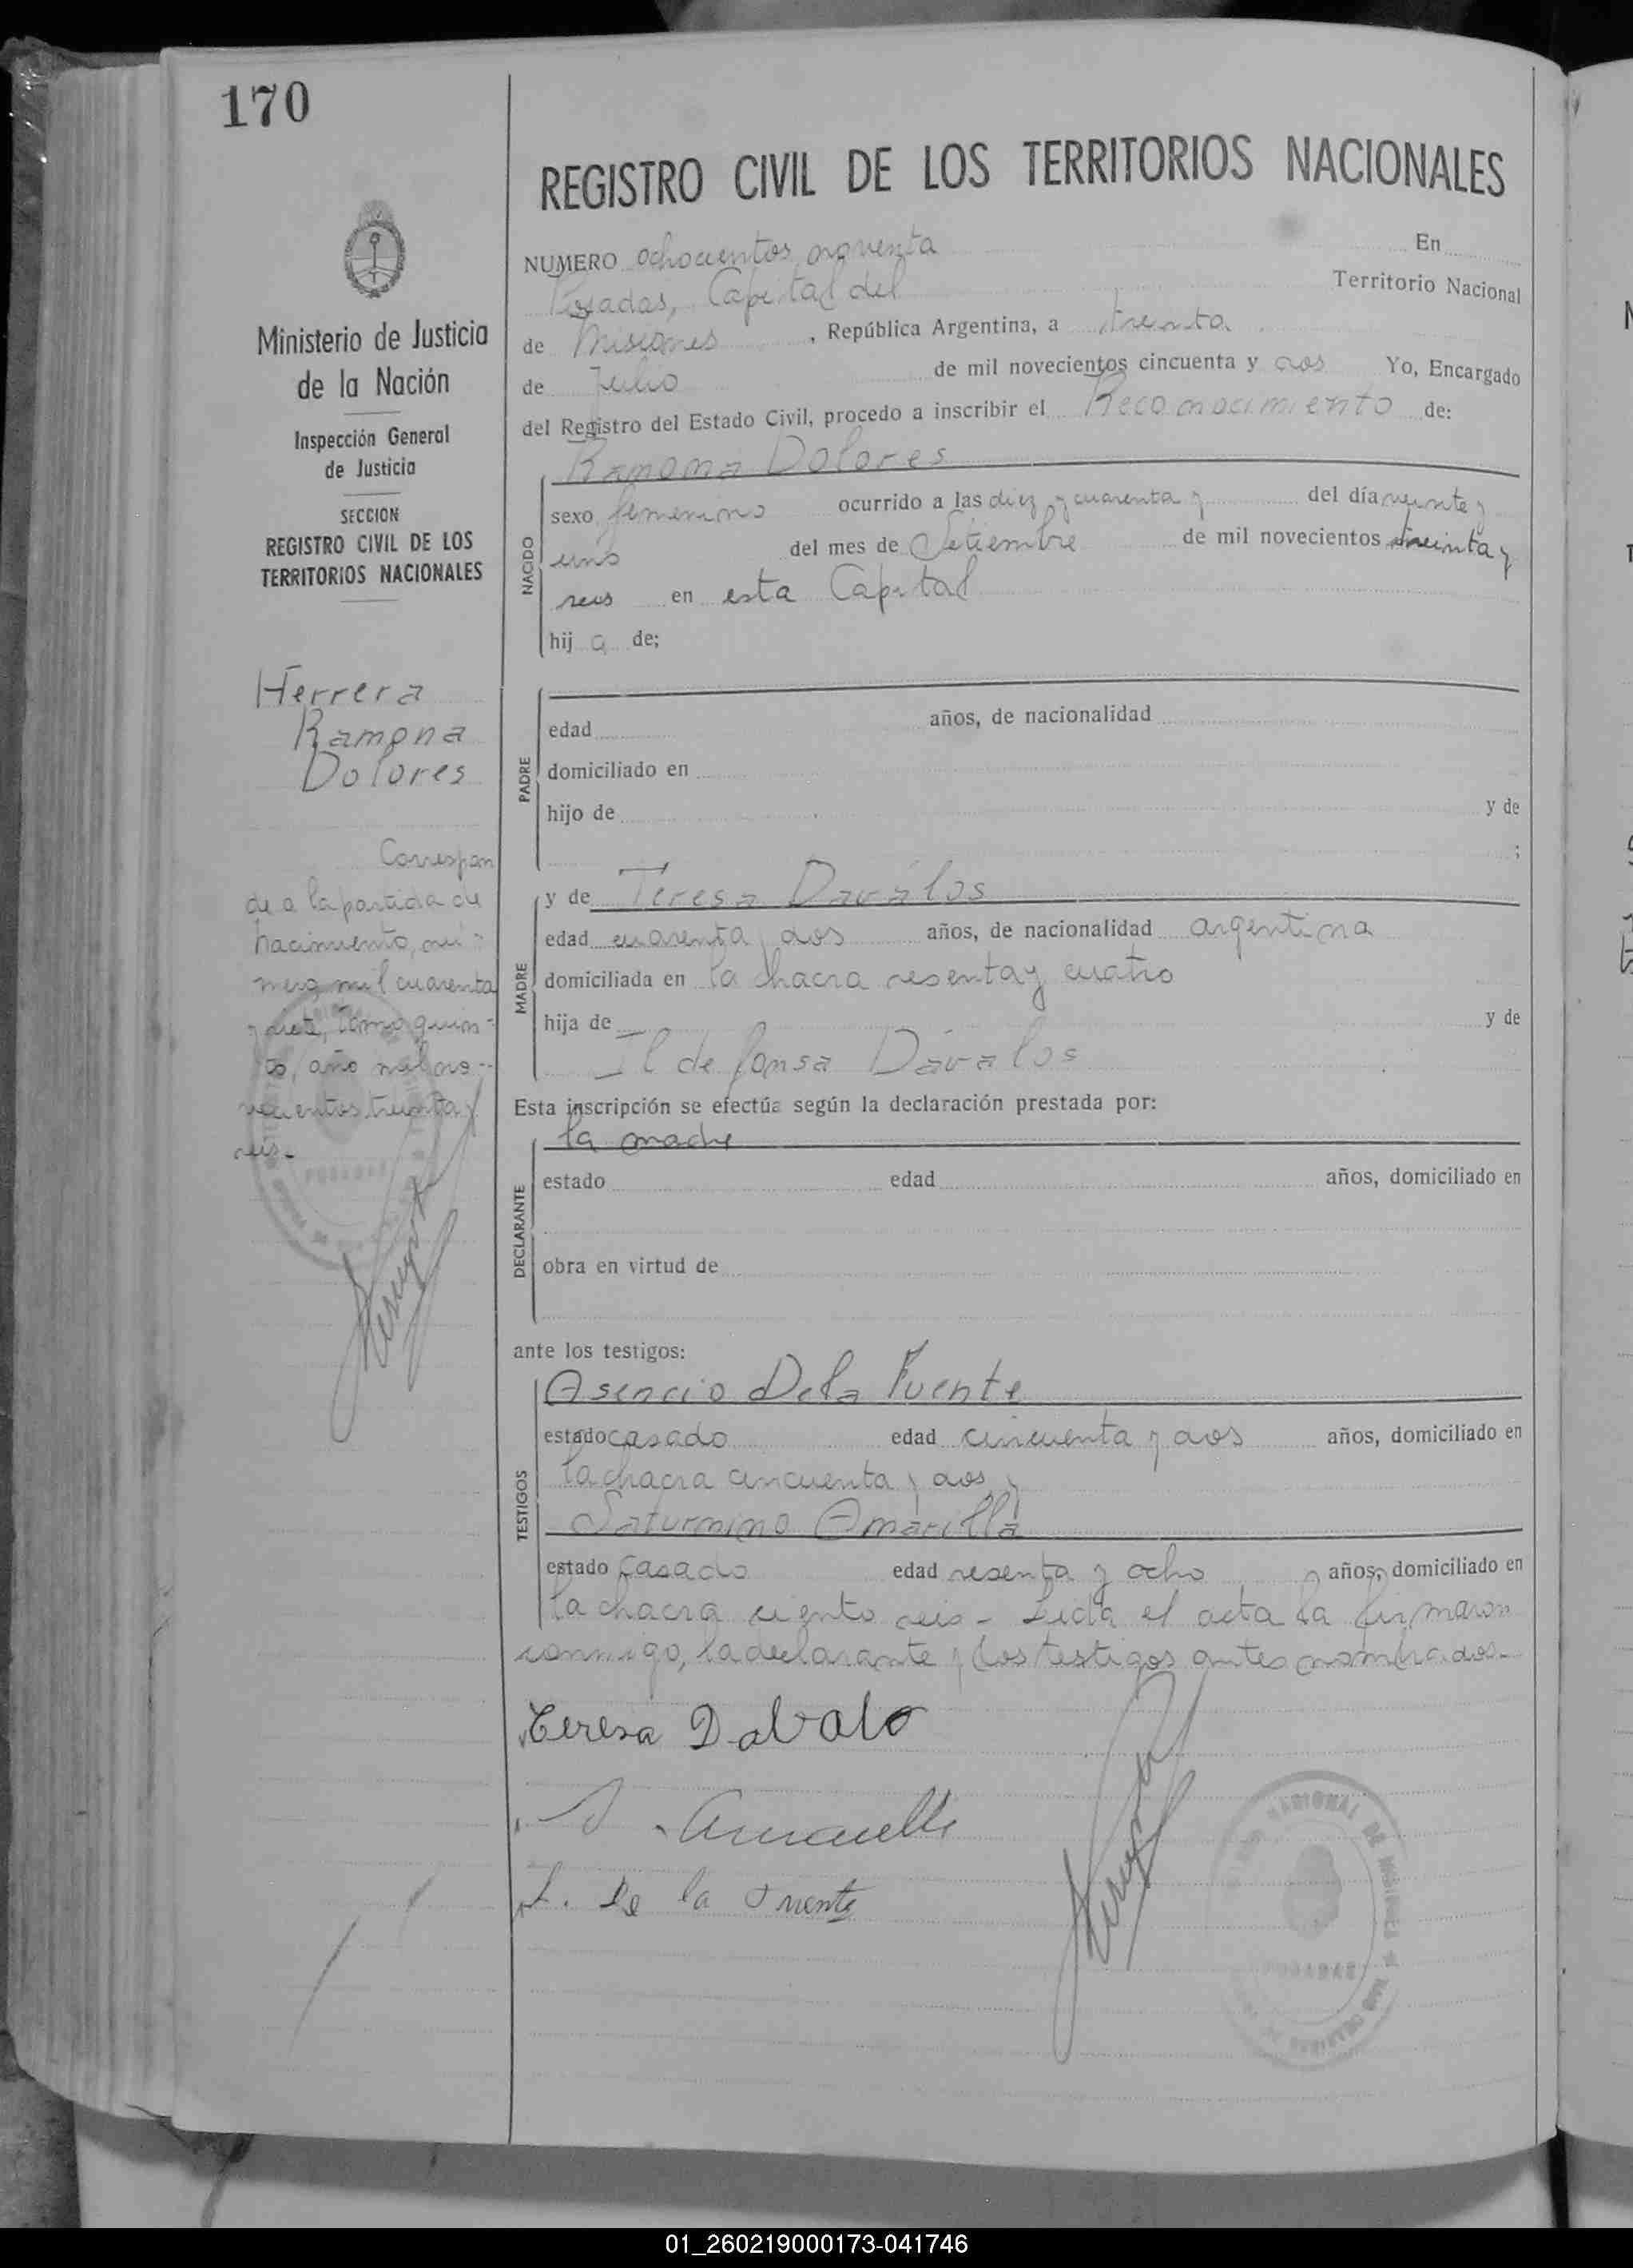 170
REGISTRO CIVIL DE LOS TERRITORIOS NACIONALES
NUMERO ochocientos noventa En
Posadas, Capital del Territorio Nacional
de Misiones, República Argentina, a treinta
de Julio de mil novecientos cincuenta y dos Yo, Encargado
del Registro del Estado Civil, procedo a inscribir el Reconocimiento de:
Ramona Dolores
NACIDO
sexo femenino ocurrido a las diez y cuarenta y del día veinte y
uno del mes de Setiembre de mil novecientos treinta y
seis en esta Capital
hija de;
PADRE
edad años, de nacionalidad
domiciliado en
hijo de y de
;
MADRE
y de Teresa Davalos
edad cuarenta y dos años, de nacionalidad argentina
domiciliada en la chacra sesenta y cuatro
hija de y de
Ildefonsa Dávalos
Esta inscripción se efectúa según la declaración prestada por:
la madre
DECLARANTE
estado edad años, domiciliado en
obra en virtud de
ante los testigos:
TESTIGOS
Asencio De la Fuente
estado casado edad cincuenta y dos años, domiciliado en
la chacra cincuenta y dos y
Saturnino Amarilla
estado casado edad sesenta y ocho años, domiciliado en
la chacra ciento seis - Leida el acta la firmaron
conmigo, la declarante y los testigos antes nombrados.-
Teresa Dabalo
S. Amarilla
A. De la Fuente
POSADAS
Ministerio de Justicia
de la Nación
Inspección General
de Justicia
SECCION
REGISTRO CIVIL DE LOS
TERRITORIOS NACIONALES
Herrera
Ramona
Dolores
Correspon
de a la partida de
nacimiento, nú-
mero mil cuarenta
y siete, tomo quin-
to, año mil no-
vecientos treinta y
seis.-
POSADAS
01_260219000173-041746